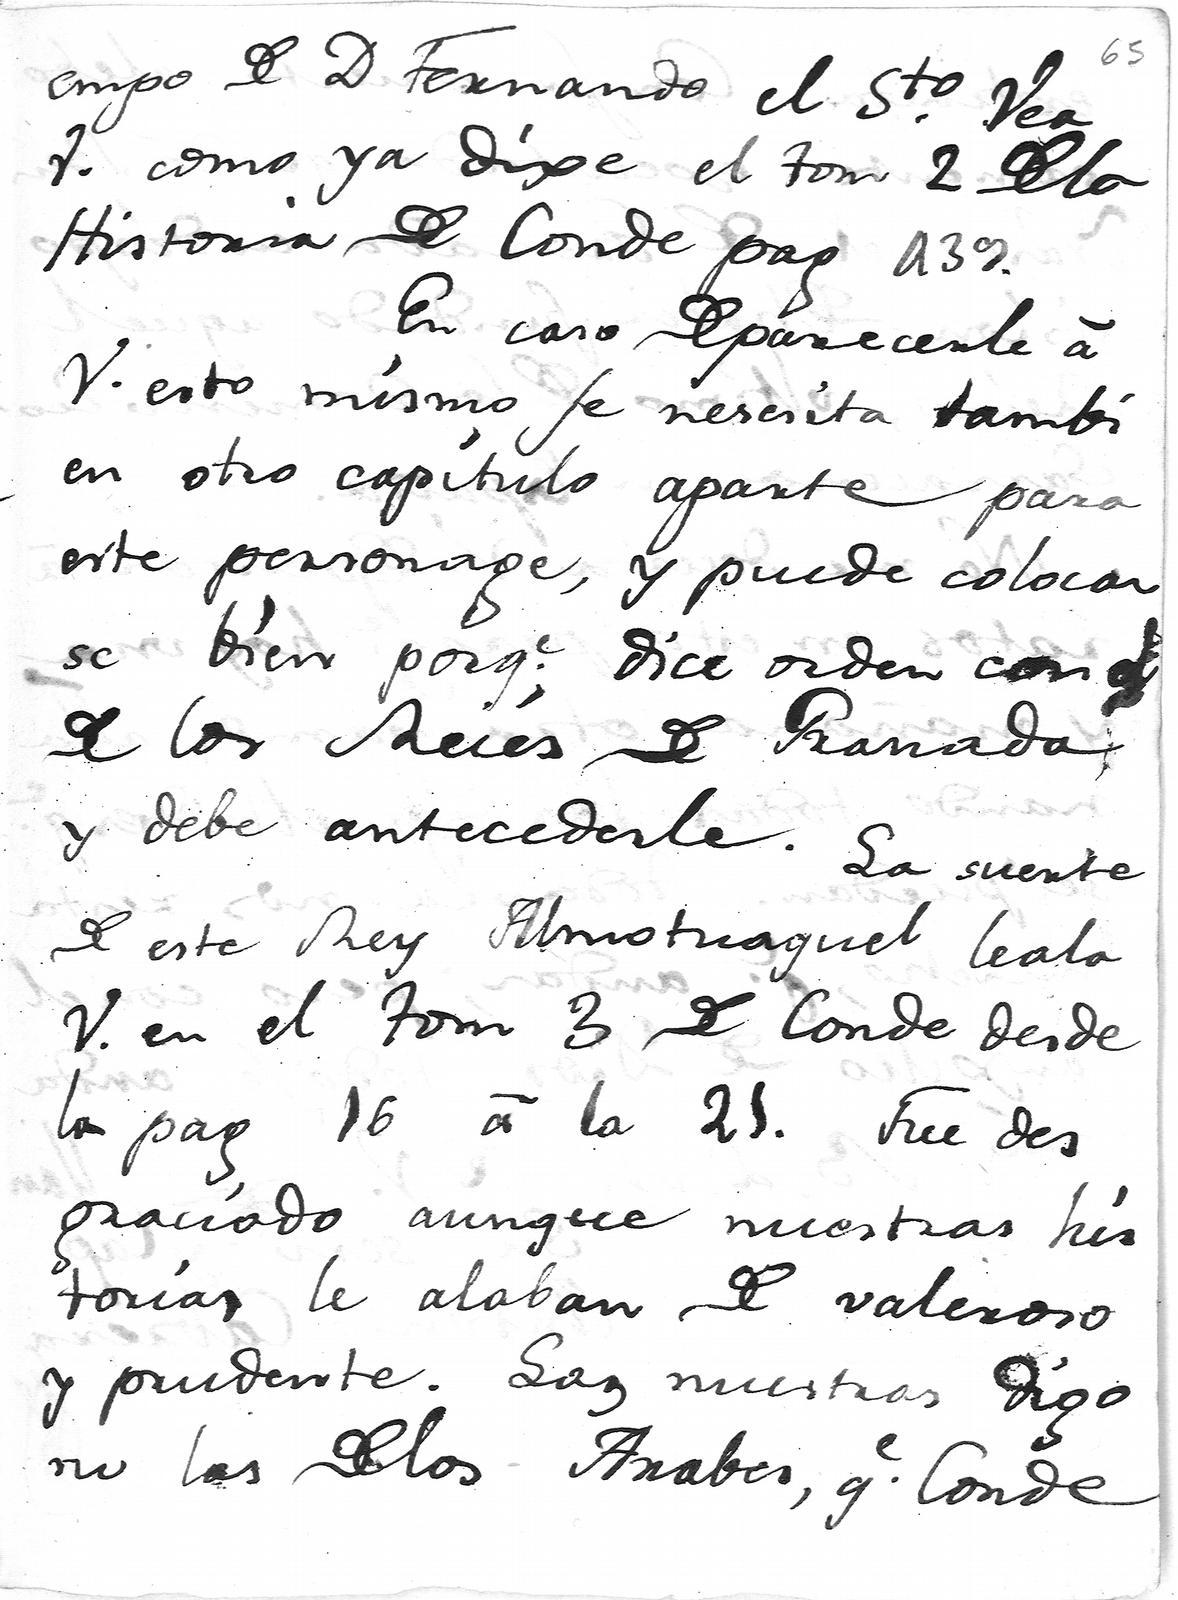 65
empo DE D Fernando el Sto. Vea
V. como ya dixe el tom 2 DEla
Historia DE Conde pag 139.
En caso DEparecerle ā
V. esto mismo se nesesita tambi
en otro capítulo aparte para
este personage, y puede colocar
se bien porqe. dice orden con el
DE los Reiés DE Granada,
y debe antecederle. La suerte
DE este Rey Almotuaquel leala
V. en el tom 3 DE Conde desde
la pag 16 ā la 21. Fue des
graciado aunque nuestras his
torias le alaban DE valeroso
y prudente. Las nuestras digo
no las DElos Arabes, qe. Conde